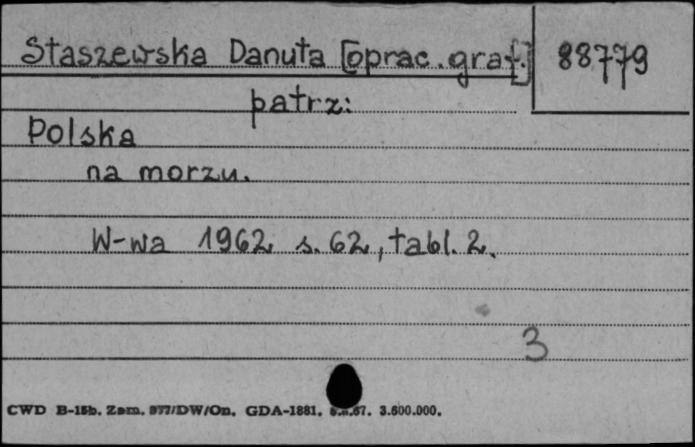 Staszewska Danuta [oprac. graf.] 88779
patrz:
Polska
na morzu.
W-wa 1962 s. 62, tabl. 2.
3
CWD B-15b. Zam. 977/DW/On. GDA-1881. 3.600.000.